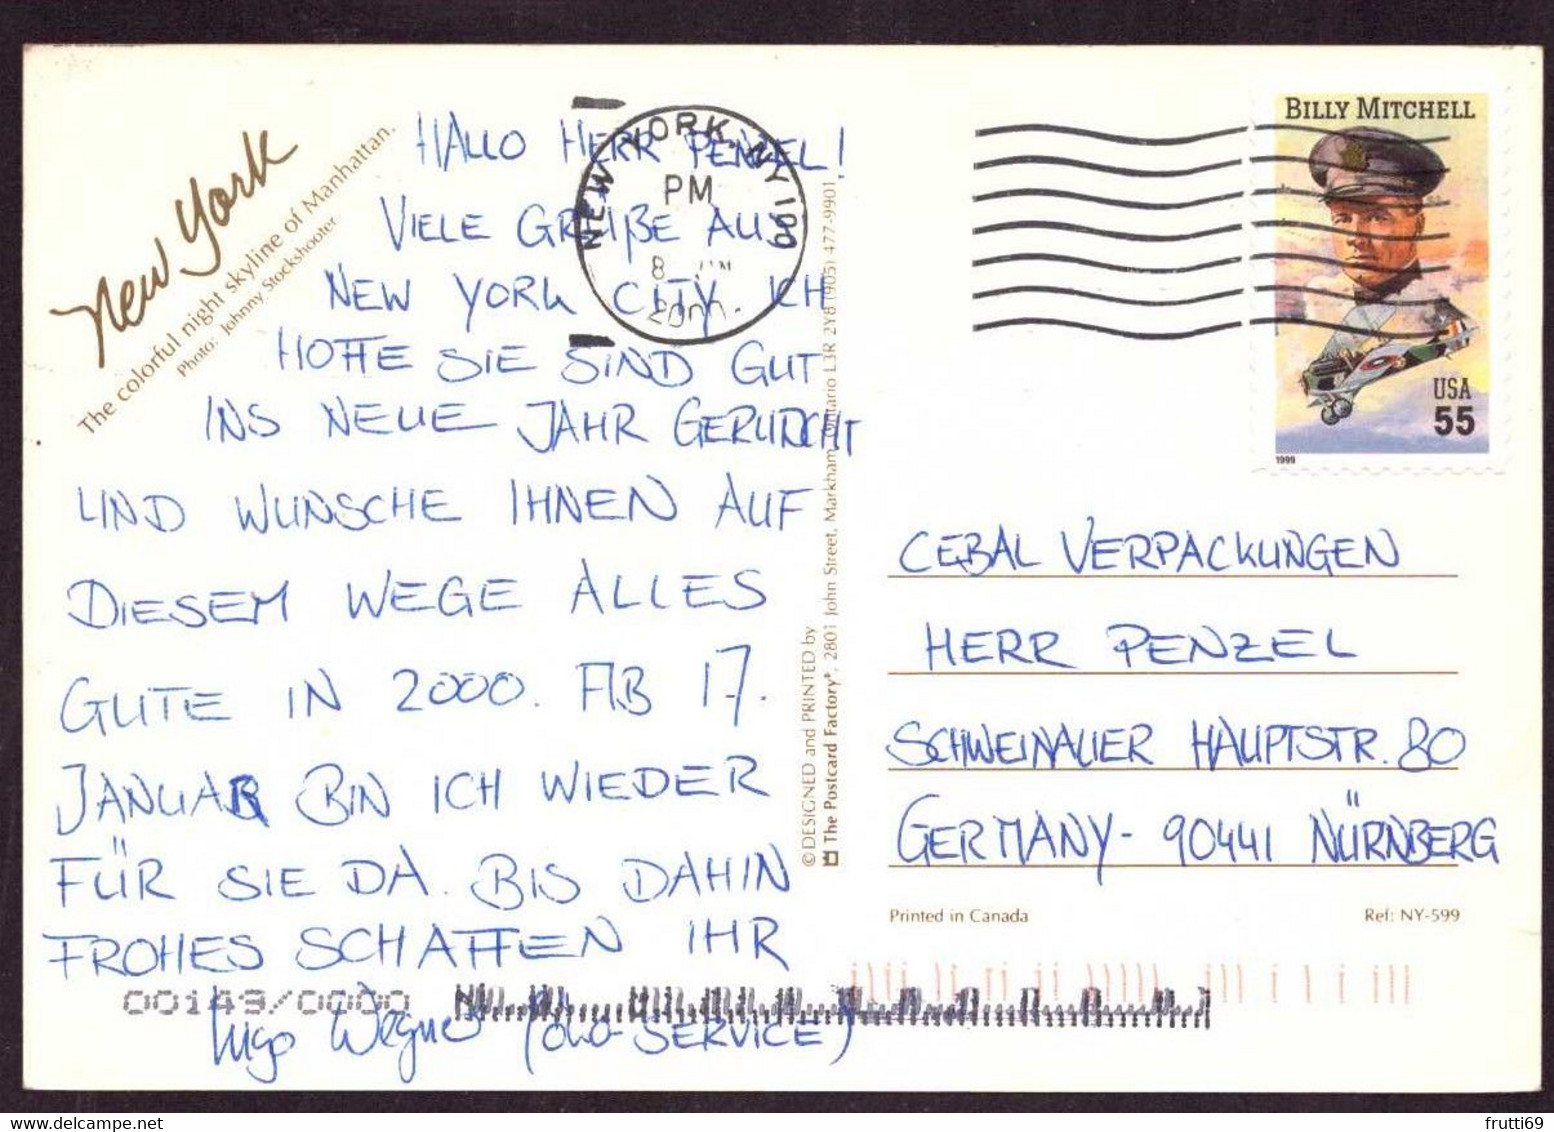 New York
The colorful night skyline of Manhattan.
Photo: Johnny Stockshooter
HALLO HERR PENZEL!
VIELE GRÜßE AUS
NEW YORK CITY. ICH
HOFFE SIE SIND GUT
INS NEUE JAHR GERUTSCHT
UND WUNSCHE IHNEN AUF
DIESEM WEGE ALLES
GUTE IN 2000. AB 17.
JANUAR BIN ICH WIEDER
FÜR SIE DA. BIS DAHIN
FROHES SCHAFFEN IHR
Ingo Wegner
SERVICE)
00143/0000
© DESIGNED and PRINTED by
The Postcard Factory®, 2801 John Street, Markham, Ontario L3R 2Y8 (905) 477-9901
NEW YORK, NY 100
PM
8
2000
BILLY MITCHELL
USA
55
1999
CEBAL VERPACKUNGEN
HERR PENZEL
SCHWEINAUER HAUPTSTR. 80
GERMANY - 90441 NÜRNBERG
Printed in Canada
Ref: NY-599
frutti69